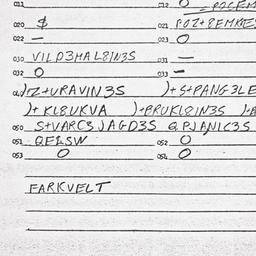 011 212 O = POCEM
020 $ 021 POZ+8EMKES
022 — 023 O
030 VILD3MAL8IN3S 031 —
032 O 033 —
040 )+Z+URAVIN3S )+S+PANG3LE
)+KL8UKVA )+BRUKL8IN3S )+A
050 S+VARC3JAGD3S QPJANIC3S
051 QELSW 052 O
053 O 054 O
FARKVELT